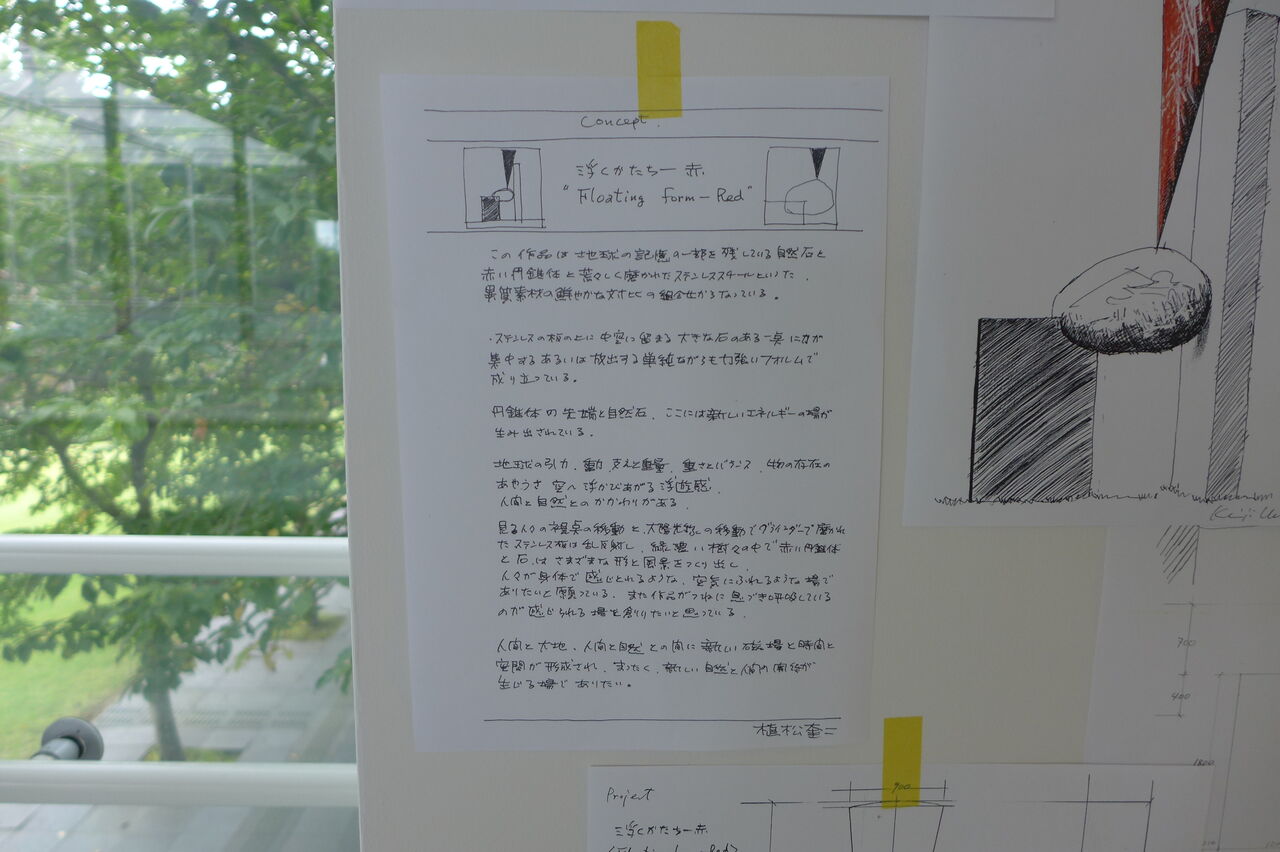 Concept.
浮くかたち一赤.
"Floating form—Red"
この作品は地球の記憶の一部を残している自然石と
赤い円錐体と荒々しく磨かれたステンレススチールといった、
異質素材の鮮やかな対比の組合せからなっている。
・ステンレスの板の上に中空に留まる大きな石のある一点に力が
集中するあるいは放出する単純ながらも力強いフォルムで
成り立っている。
円錐体の先端と自然石、ここには新しいエネルギーの場が
生み出されている。
地球の引力、重力、支えと重量、重さとバランス、物の存在の
あやうさ 空へ浮かびあがる浮遊感、
人間と自然とのかかわりがある。
見る人々の視点の移動と、太陽光線の移動でグラインダーで磨かれ
たステンレス板は乱反射し、緑濃い樹々の中で赤い円錐体
と石は さまざまな形と風景をつくり出し、
人々が身体で感じとれるような、空気にふれるような場で
ありたいと願っている。また作品がつねに息づき呼吸している
のが感じられる場を創りたいと思っている。
人間と大地、人間と自然との間に新しい磁場と時間と
空間が形成され、まったく、新しい自然と人間の関係が
生じる場でありたい。
植松奎二
Keiji
700
400
1800
Project
900
浮くかたち一赤.